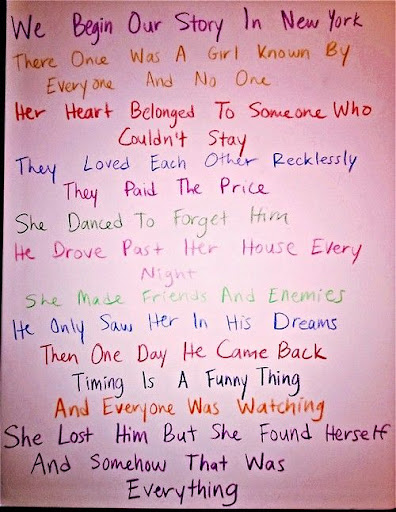 We Begin Our Story In New York
There Once Was A Girl Known By
Everyone And No One
Her Heart Belonged To Someone Who
Couldn't Stay
They Loved Each Other Recklessly
They Paid The Price
She Danced To Forget Him
He Drove Past Her House Every
Night
She Made Friends And Enemies
He Only Saw Her In His Dreams
Then One Day He Came Back
Timing Is A Funny Thing
And Everyone Was Watching
She Lost Him But She Found Herself
And Somehow That Was
Everything